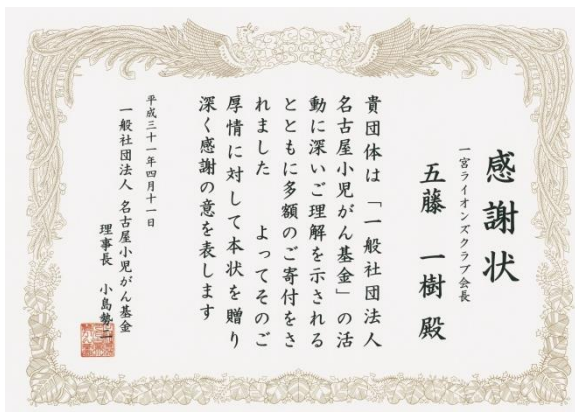 感謝状
一宮ライオンズクラブ会長
五藤 一樹 殿
貴団体は「一般社団法人
名古屋小児がん基金」の活
動に深いご理解を示される
とともに多額のご寄付をさ
れました よってそのご
厚情に対して本状を贈り
深く感謝の意を表します
平成三十一年四月十一日
一般社団法人 名古屋小児がん基金
理事長 小島勢二